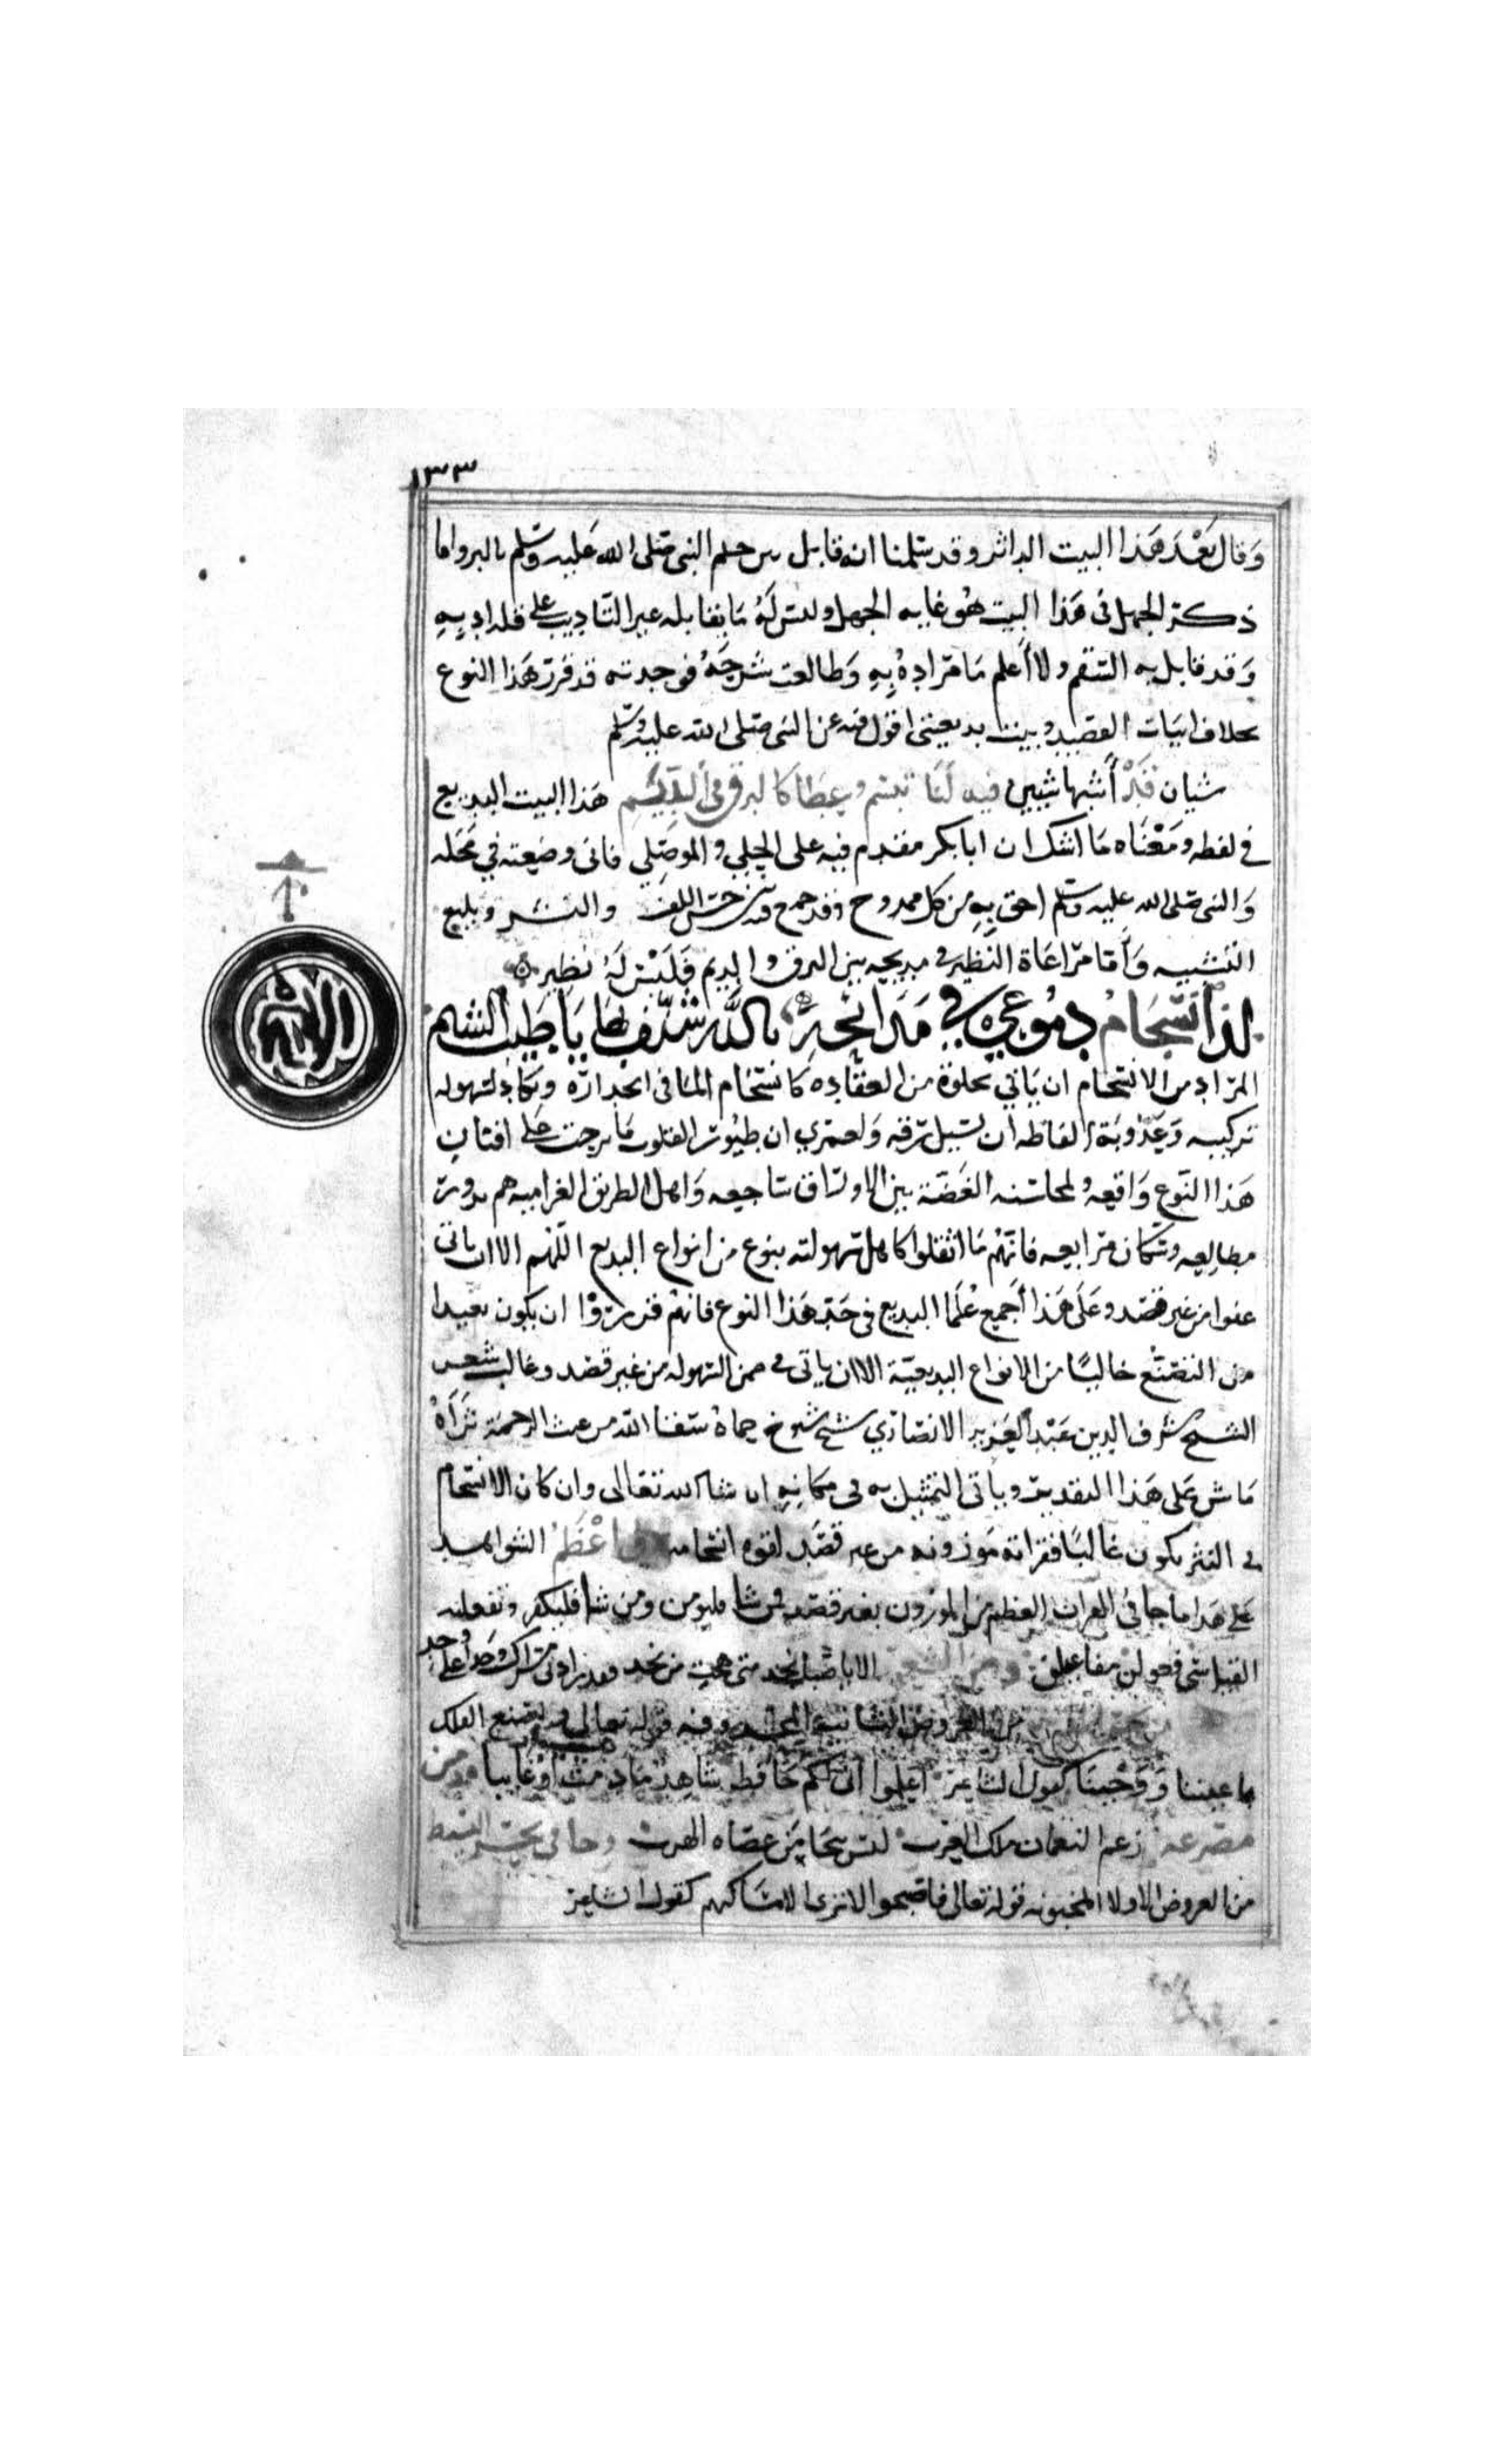 ١٣٣
وقال بعد هذا البيت الداثر وقد سلمنا انه قابل حلم النبي صلى الله عليه وسلم بالبر واما
ذكر الجهل في هذا البيت هو غايه الجهل وليس له ما يقابله غير التاديب على قله ادبه
وقد قابل به التنقم ولا أعلم ما مراده به وطالعت شرحه فوجدته قد قرر هذا النوع
بخلاف ابيات القصيد وبيت بديعيتي اقول فيه عن النبي صلى الله عليه وسلم
شيان قد أشبها شيين فيه لنا تبسم وعطا كالبرق في الديم هذا البيت البديع
في لفظه ومعناه ما اشك ان ابا بكر مقدم فيه على الحلي والموصلي فاني وضعته في محله
والنبي صلى الله عليه وسلم احق به من كل ممدوح فقد جمع فيه حسن اللف والنشر وبليغ
التشبيه وأما مراعاة النظير في مديحه بين البرق والديم فليس له نظير
لذا انسجام دموعي في مدائحه بالله شنف بها يا طيب النشم
المراد من الانسجام ان ياتي لخلوه من العقاده كانسجام الما في انحداره ويكاد لسهوله
تركيبه وعذوبة الفاظه ان تسيل رقه ولعمري ان طيور القلوب ما برحت على افنان
هذا النوع واقعه ولمحاسنه الغضة بين الاوراق ساجعه واهل الطريق الغراميه هم بدور
مطالعه وسكان مرابعه فانهم ما اثقلوا كاهل سهولته بنوع من انواع البديع اللهم الا ان ياتي
عفوا من غير قصد وعلى هذا أجمع علما البديع في حد هذا النوع فانهم قرروا ان يكون بعيدا
من التصنع خاليا من الانواع البديعية الا ان ياتي في ضمن السهوله من غير قصد وغالب شعر
الشيخ شرف الدين عبد العزيز الانصاري شيخ شيوخ حماة سقا الله من غيث الرحمة ثراه
ماش على هذا التقدير وياتي التمثيل به في مكانه ان شا الله تعالى وان كان الانسجام
في النثر يكون غالبا فقراته موزونه من غير قصد لقوه انسجامه واعظم الشواهد
على هذا ما جا في القران العظيم من الموزون بغير قصد فمن شا فليومن ومن شا فليكفر وتفعيله
القياسي فعولن مفاعيلن ومن الشعر الا يا صبا نجد متى هجت من نجد فقد زادني مسراك وجدا على وجد
من العروض الثانيه وفيه قوله تعالى واصنع الفلك
باعيننا ووحينا كقول الشاعر اعلموا اني لكم حافظ شاهدا ما دمت او غايبا ومن
مصرعه زعم النعمان ملك العرب ليس ينجا من عصاه الهرب وجا في بحر البسيط
من العروض الاولى المخبونه قوله تعالى فاصبحوا لا ترى الا مساكنهم كقول الشاعر